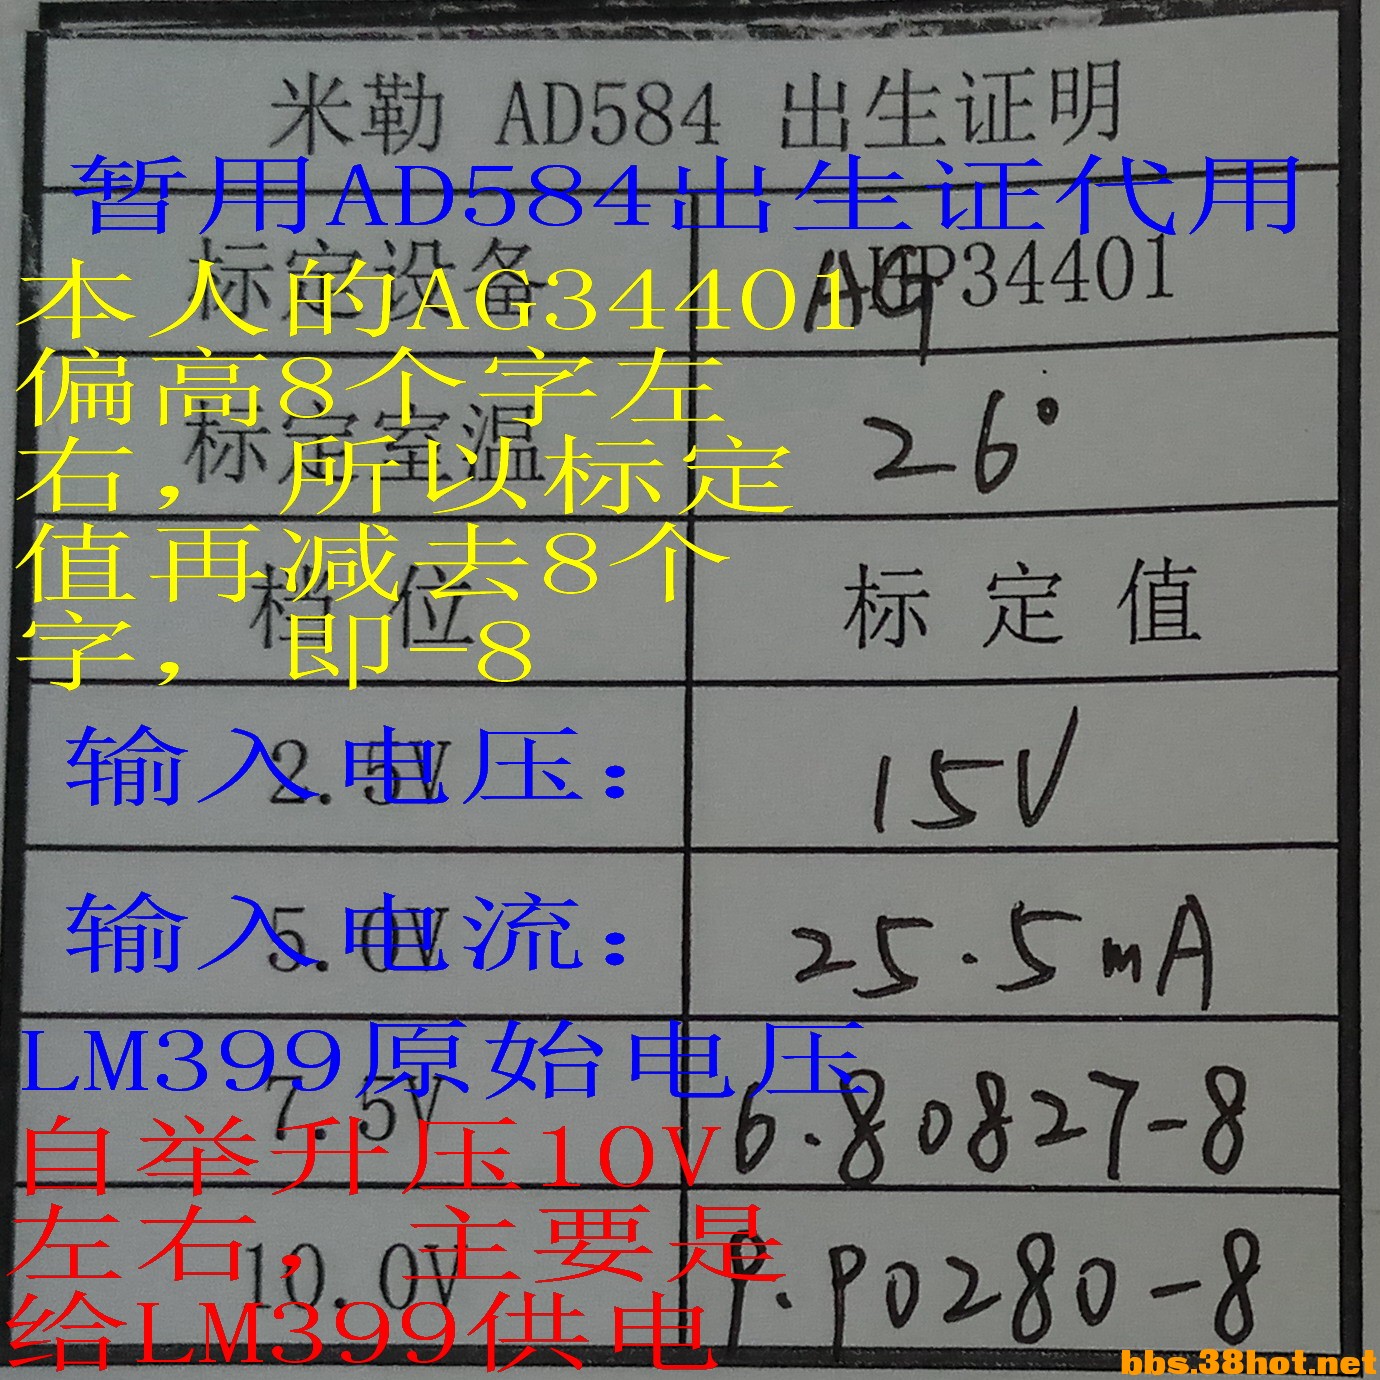 米勒 AD584 出生证明
暂用AD584出生证代用
标定设备 AG HP34401
本人的AG34401
偏高8个字左
标定室温 26°
右，所以标定
值再减去8个
档 位 标 定 值
字，即-8
输入电压：
2.5V 15V
输入电流：
5.0V 25.5mA
LM399原始电压
7.5V 6.80827-8
自举升压10V
左右，主要是
10.0V 9.90280-8
给LM399供电
bbs.38hot.net